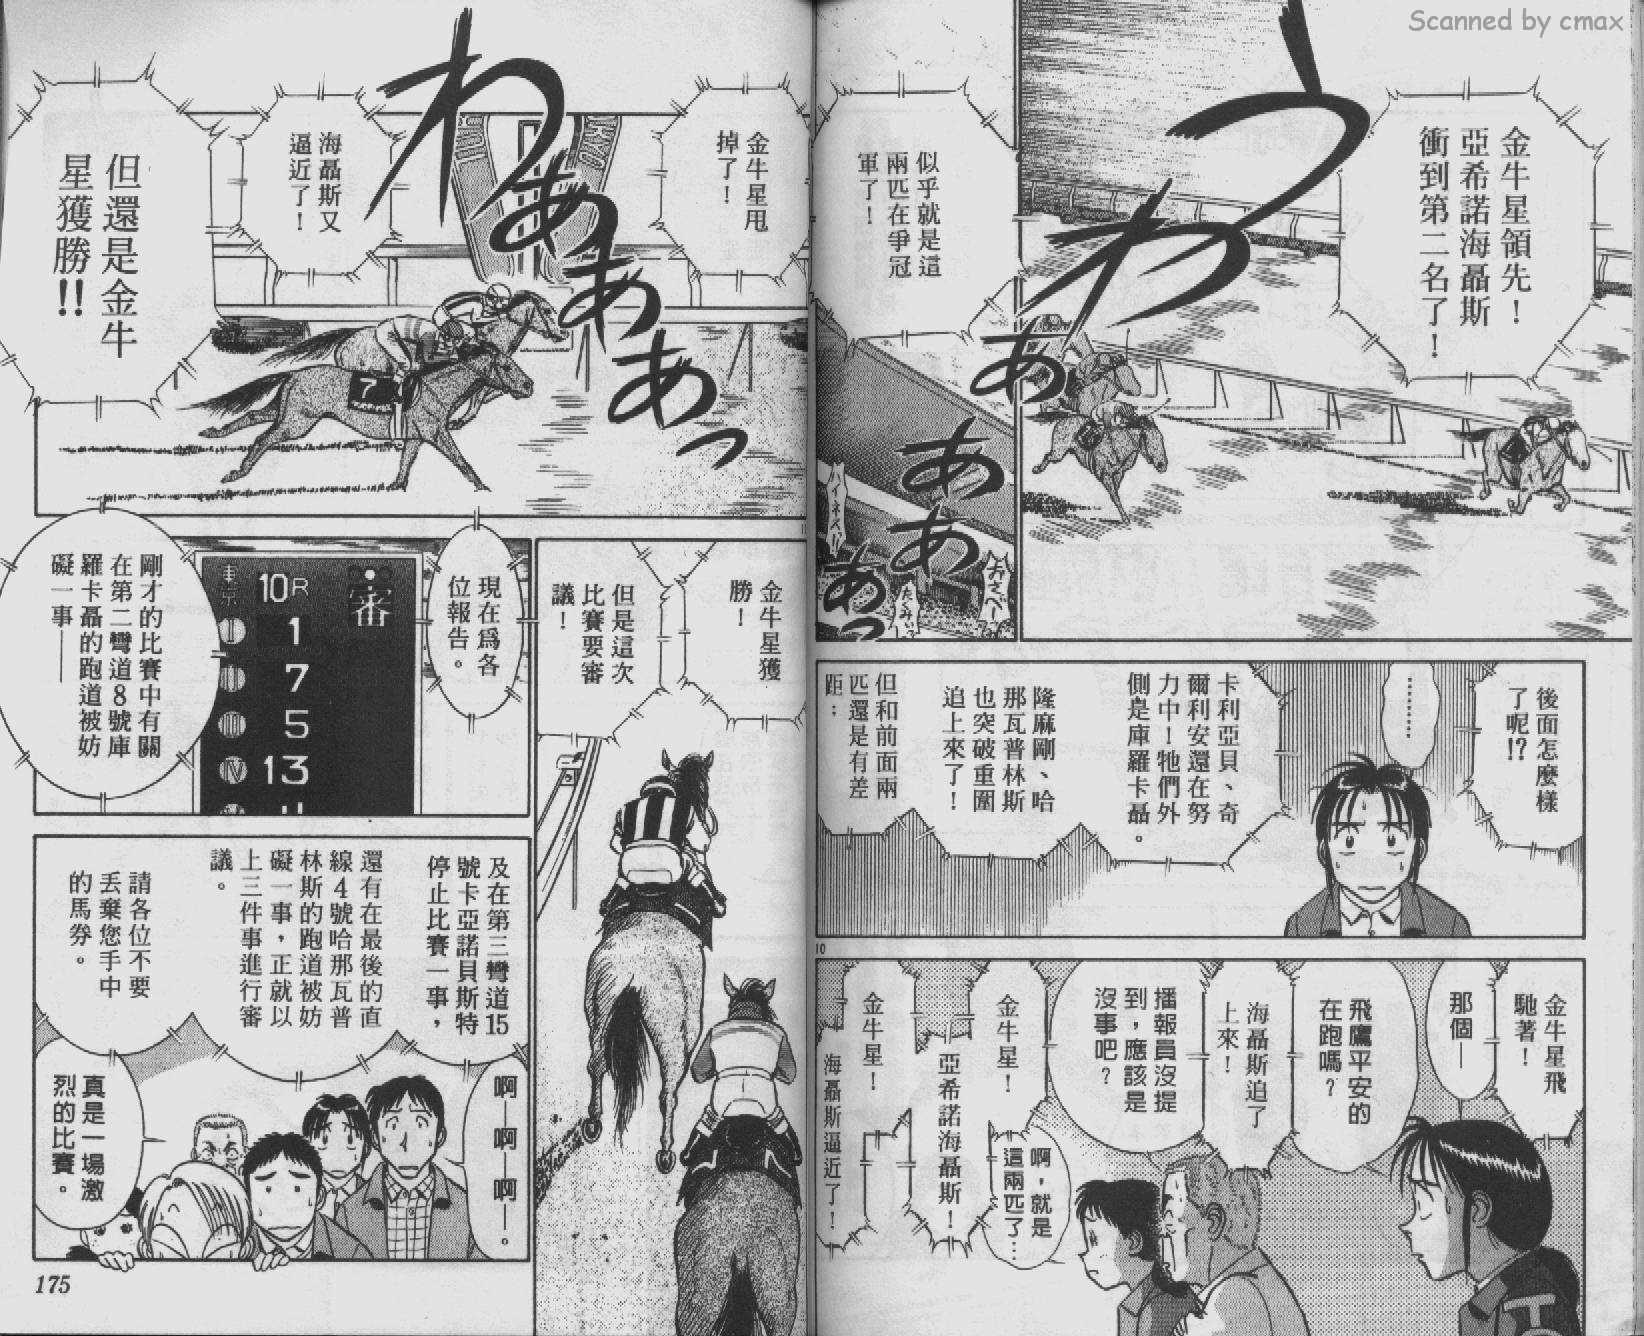 Scanned by cmax
金牛星領先！
亞希諾海聶斯
衝到第二名了！
うわ
ああああ
似乎就是這
兩匹在爭冠
軍了！
ハイネスー
おさべー
たくみぃ
後面怎麼樣
了呢!?
………
卡利亞貝、奇
爾利安還在努
力中！牠們外
側是庫羅卡聶。
隆麻剛、哈
那瓦普林斯
也突破重圍
追上來了！
但和前面兩
匹還是有差
距…
10
金牛星飛
馳著！
那個—
飛鷹平安的
在跑嗎？
海聶斯追了
上來！
播報員沒提
到，應該是
沒事吧？
啊，就是
這兩匹了…
金牛星！
亞希諾海聶斯！
金牛星！
海聶斯逼近了！
金牛星甩
掉了！
わあああっ
海聶斯又
逼近了！
7
但還是金牛
星獲勝!!
金牛星獲
勝！
但是這次
比賽要審
議！
現在為各
位報告。
東京
10R
審
I 1
II 7
III 5
IV 13
剛才的比賽中有關
在第二彎道8號庫
羅卡聶的跑道被妨
礙一事——
及在第三彎道15
號卡亞諾貝斯特
停止比賽一事，
還有在最後的直
線4號哈那瓦普
林斯的跑道被妨
礙一事，正就以
上三件事進行審
議。
請各位不要
丟棄您手中
的馬券。
啊—啊—啊—。
真是一場激
烈的比賽。
175